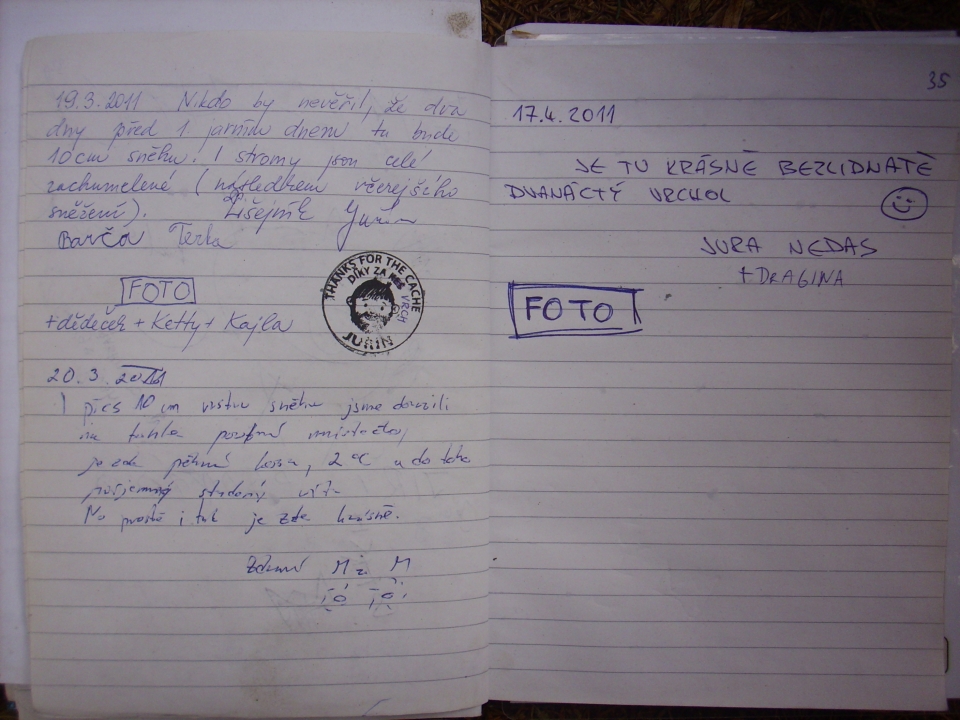 19.3.2011 Nikdo by nevěřil, že dva
dny před 1. jarním dnem tu bude
10cm sněhu. I stromy jsou celé
zachumelené (následkem včerejšího
sněžení). Lišejník Jurin
Barča Terka
FOTO
+dědeček + Ketty + Kajla
THANKS FOR THE CACHE
DÍKY ZA KEŠ
VRCH
JUŘIN
20.3.2011
I přes 10 cm vrstvu sněhu jsme dorazili
na tohle místečko,
je zde pěkná kosa, 2 °C a do toho
studený
No prostě i tak je zde krásně.
Zdraví M z M
35
17.4.2011
JE TU KRÁSNĚ BEZLIDNATĚ
DVANÁCTÝ VRCHOL
JURA NEDAS
+DRAGINA
FOTO